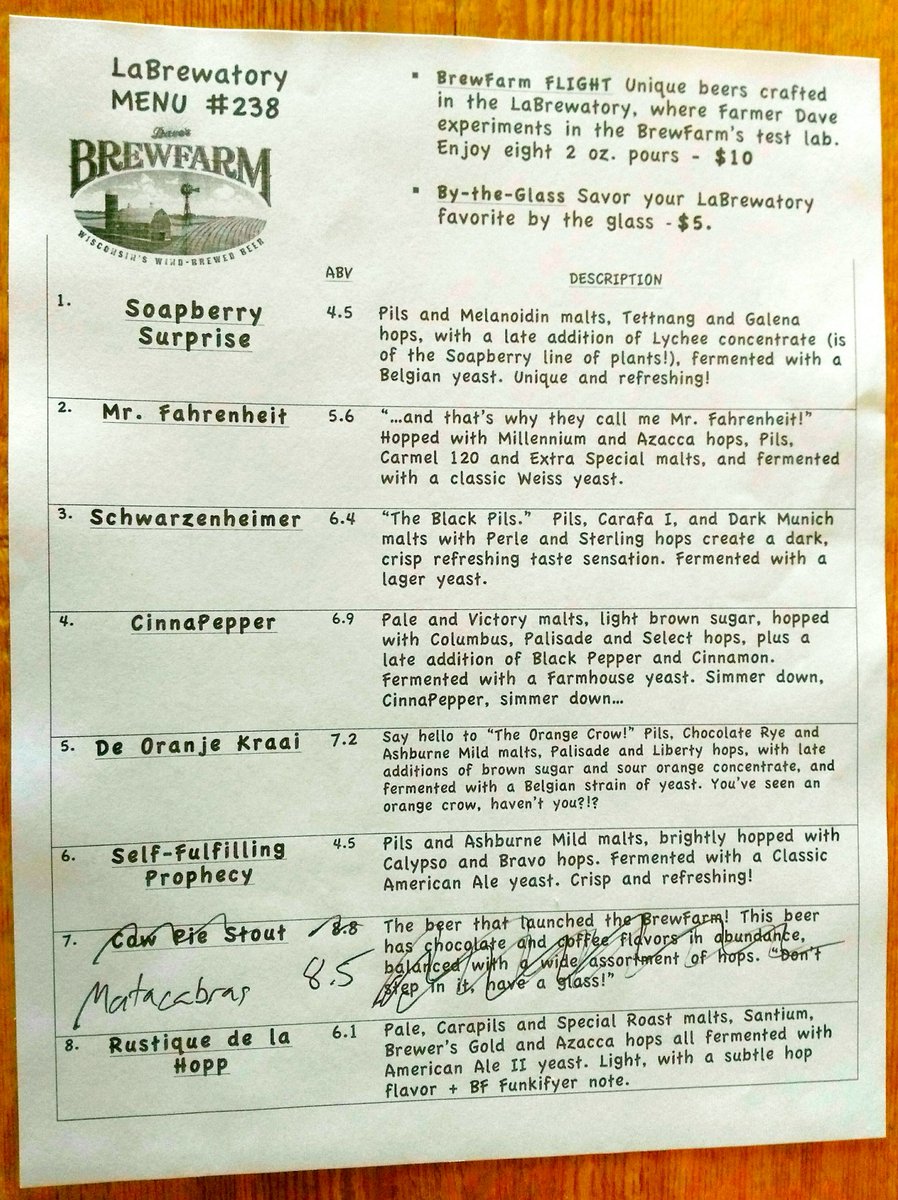 LaBrewatory
MENU #238
Dave's
BREWFARM
WISCONSIN'S WIND-BREWED BEER
▪ BrewFarm FLIGHT Unique beers crafted
in the LaBrewatory, where Farmer Dave
experiments in the BrewFarm's test lab.
Enjoy eight 2 oz. pours - $10
▪ By-the-Glass Savor your LaBrewatory
favorite by the glass -$5.
ABV DESCRIPTION
1. Soapberry Surprise 4.5 Pils and Melanoidin malts, Tettnang and Galena
hops, with a late addition of Lychee concentrate (is
of the Soapberry line of plants!), fermented with a
Belgian yeast. Unique and refreshing!
2. Mr. Fahrenheit 5.6 "...and that's why they call me Mr. Fahrenheit!"
Hopped with Millennium and Azacca hops, Pils,
Carmel 120 and Extra Special malts, and fermented
with a classic Weiss yeast.
3. Schwarzenheimer 6.4 "The Black Pils." Pils, Carafa I, and Dark Munich
malts with Perle and Sterling hops create a dark,
crisp refreshing taste sensation. Fermented with a
lager yeast.
4. CinnaPepper 6.9 Pale and Victory malts, light brown sugar, hopped
with Columbus, Palisade and Select hops, plus a
late addition of Black Pepper and Cinnamon.
Fermented with a Farmhouse yeast. Simmer down,
CinnaPepper, simmer down...
5. De Oranje Kraai 7.2 Say hello to "The Orange Crow!" Pils, Chocolate Rye and
Ashburne Mild malts, Palisade and Liberty hops, with late
additions of brown sugar and sour orange concentrate, and
fermented with a Belgian strain of yeast. You've seen an
orange crow, haven't you?!?
6. Self-Fulfilling Prophecy 4.5 Pils and Ashburne Mild malts, brightly hopped with
Calypso and Bravo hops. Fermented with a Classic
American Ale yeast. Crisp and refreshing!
7. Cow Pie Stout 8.8 The beer that launched the BrewFarm! This beer
has chocolate and coffee flavors in abundance,
balanced with a wide assortment of hops. "Don't
step in it, have a glass!"
Matacabras 8.5
8. Rustique de la Hopp 6.1 Pale, Carapils and Special Roast malts, Santium,
Brewer's Gold and Azacca hops all fermented with
American Ale II yeast. Light, with a subtle hop
flavor + BF Funkifyer note.